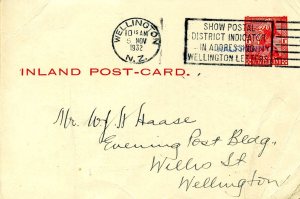 WELLINGTON
10 15 AM
5 NOV
1932
N.Z.
SHOW POSTAL
DISTRICT INDICATOR
IN ADDRESSING
WELLINGTON
INLAND POST-CARD.
Mr. W J St Haase
Evening Post Bldg.
Willis St
Wellington